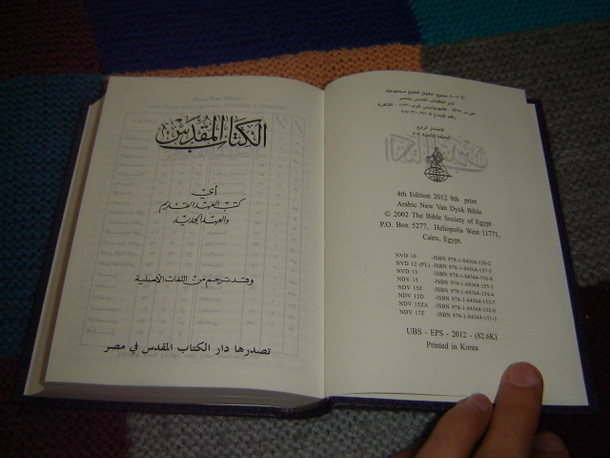 الكتاب المقدس
أي
كتب العهد القديم
والعهد الجديد
وقد ترجم من اللغات الأصلية
تصدرها دار الكتاب المقدس في مصر
جميع حقوق الطبع محفوظة
دار الكتاب المقدس بمصر
الإصدار الرابع
4th Edition 2012 8th print
Arabic New Van Dyck Bible
© 2002 The Bible Society of Egypt
P.O. Box 5277, Heliopolis West 11771,
Cairo, Egypt.
NVD 10 -ISBN 978-1-84364-156-2
NVD 12 (PL) -ISBN 978-1-84364-157-5
NVD 13 -ISBN 978-1-84364-
NDV 15 -ISBN 978-1-84364-155-1
NDV 15Z -ISBN 978-1-84364-154-4
NDV 15D -ISBN 978-1-84364-153-7
NDV 15ZA -ISBN 978-1-84364-152-0
NDV 17Z -ISBN 978-1-84364-151-3
UBS - EPS - 2012 - (82.6K)
Printed in Korea